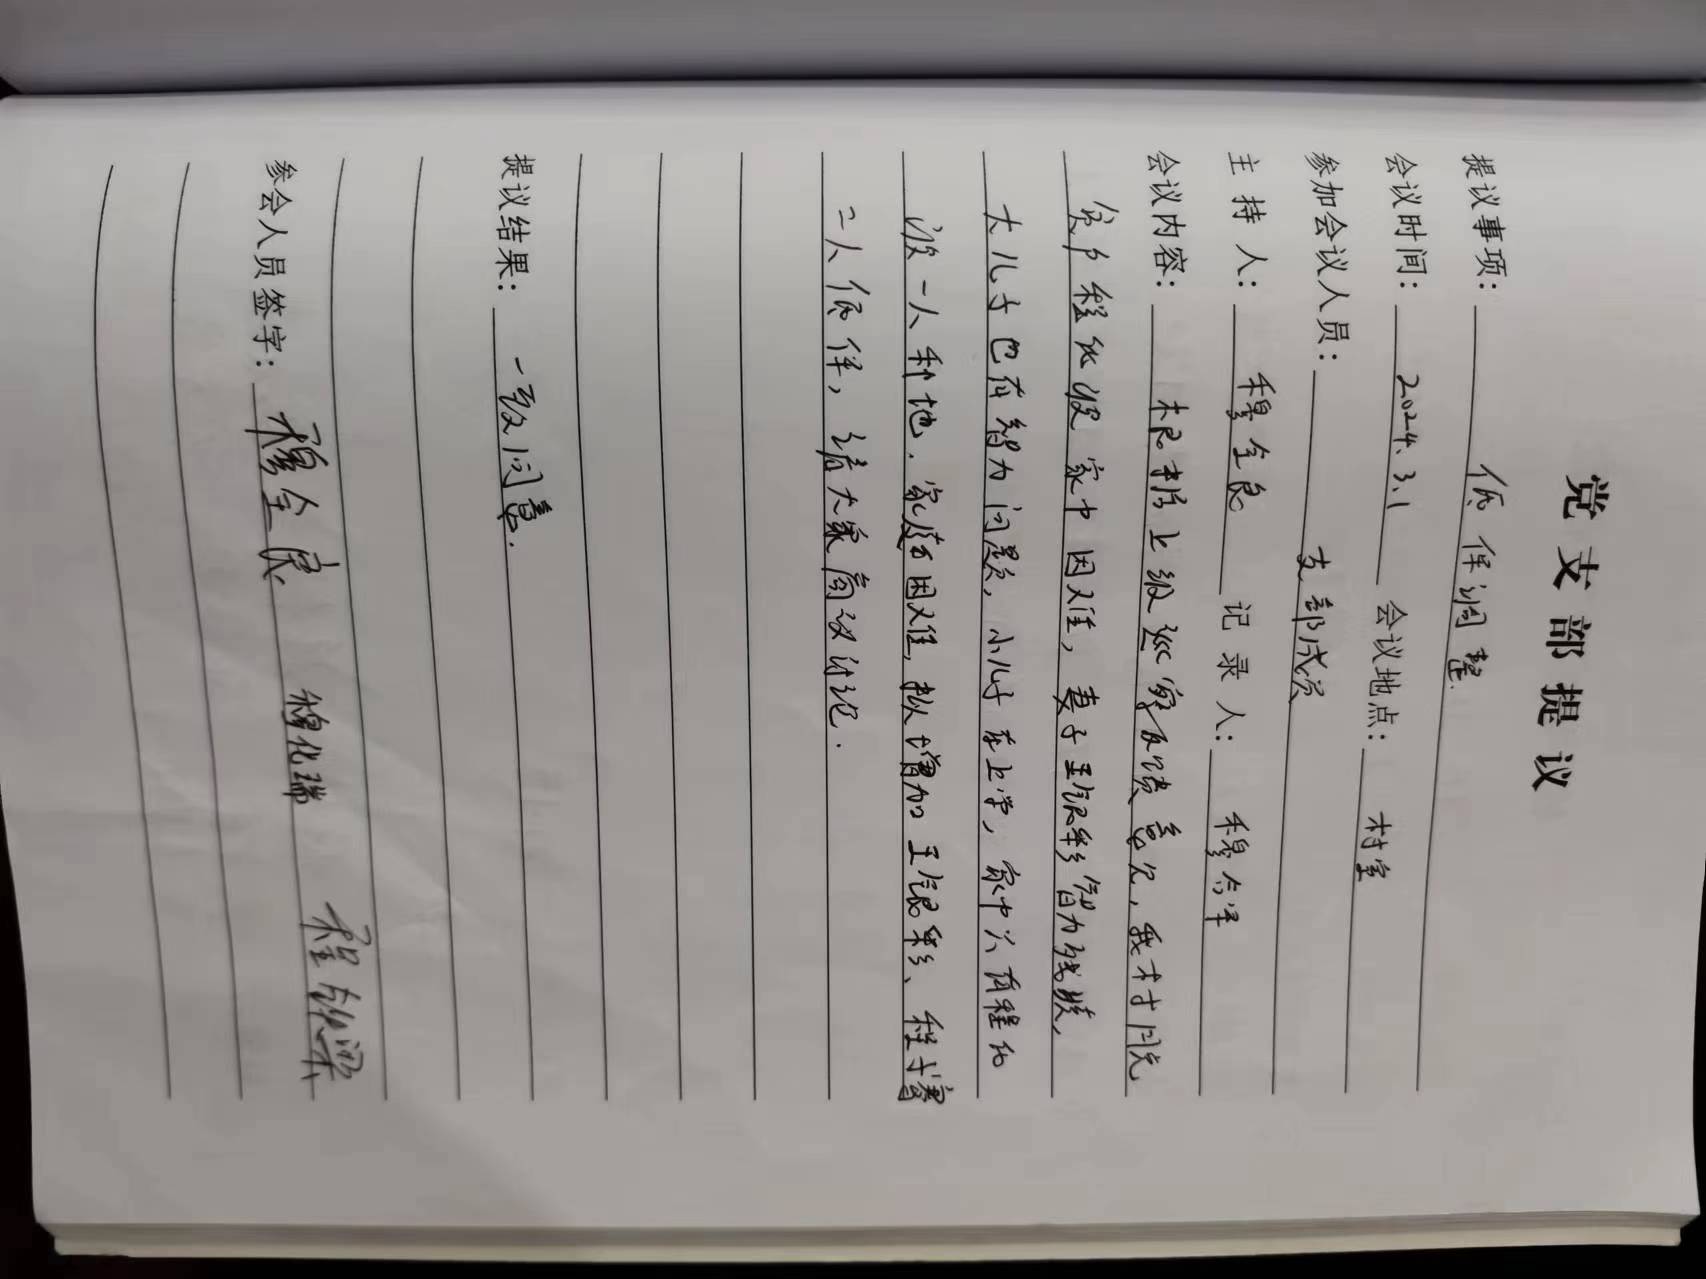 党支部提议
提议事项：低保调整
会议时间：2024.3.1 会议地点：村室
参加会议人员：支部成员
主持人：穆全良 记录人：穆合军
会议内容：根据上级巡察反馈意见，我村
贫户程化波家中困难，妻子王银彩智力残疾，
大儿子也有智力问题，小儿子在上学，家中只有程化
波一人种地．家庭困难，拟增加王银彩、程
二人低保，请大家商议讨论．
提议结果：一致同意．
参会人员签字：穆全良 穆化瑞 程